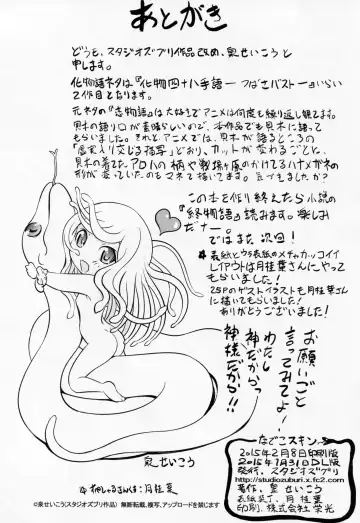 あとがき
どうも、スタジオズブリ作品改め、泉せいこうと
申します。
化物語ネタは『化物四十八手語ーつばさバストー』いらい
2作目となります。
元ネタの『恋物語』は大好きでアニメは何度も繰り返し観てます。
貝木の語り口が素晴らしいので、本作品でも貝木に語って
もらいました。きれと、アニメでは、貝木が語るところの
「虚実入り交じる描写」どおり、カットが変わるごとに、
貝木の着てたアロハの柄や戦場ヶ原のかけてるハナメガネの
形が変っていたのもマネて描いてます。気づきましたか?
この本を作り終えたら小説の
『終物語』読みます。楽しみ
だナー。
ではまた次回!
表紙とウラ表紙のメチャカッコイイ
レイアウトは月桂葉さんにやって
もらいました!
25Pのゲストイラストも月桂葉さん
に描いてもらいました!
ありがとうございます!
お願いごと
言ってみてよ!
わたし
神だからっ
神様だから!!
泉せいこう
なでこスキン
2015年2月8日印刷版
2015年7月31日DL版
発行、スタジオズブリ
http://studiozuburi.x.fc2.com
著作、泉せいこう
表紙装丁、月桂葉
印刷、株式会社栄光
©泉せいこう(スタジオズブリ作品) 無断転載、複写、アップロードを禁じます